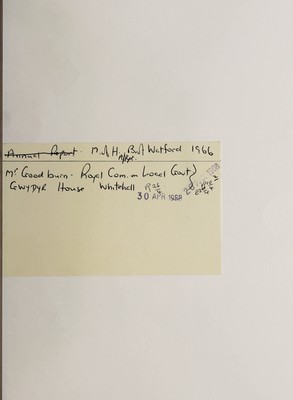 Annual Report M.O.H. Watford 1966
Mr Goodburn - Royal Com. on Local Govt)
GWYDYR House Whitehall
30 APR 1968